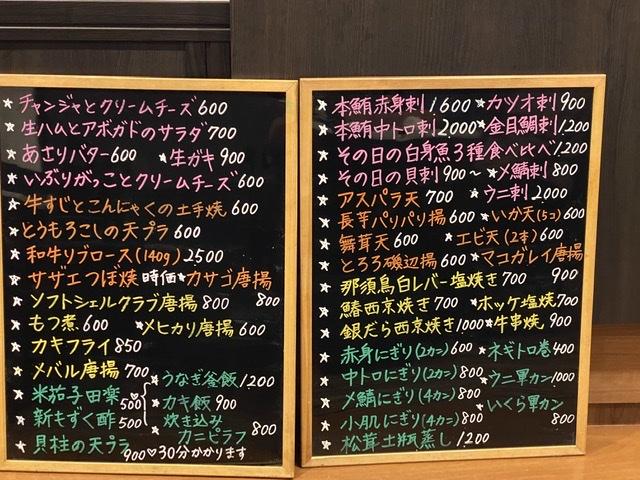 ★ チャンジャとクリームチーズ 600
★ 生ハムとアボガドのサラダ 700
★ あさりバター 600 ★ 生ガキ 900
★ いぶりがっことクリームチーズ 600
★ 牛すじとこんにゃくの土手焼 600
★ とうもろこしの天プラ 600
★ 和牛リブロース(140g) 2500
★ サザエつぼ焼 時価 ★ カサゴ唐揚 800
★ ソフトシェルクラブ唐揚 800
★ もつ煮 600 ★ メヒカリ唐揚 600
★ カキフライ 850
★ メバル唐揚 700
★ 米茄子田楽 500
★ 新もずく酢 500
★ 貝柱の天プラ 900
★ うなぎ釜飯 1200
★ カキ飯 900
★ 炊き込みカニピラフ 800
♡30分かかります
★ 本鮪赤身刺 1600 ★ カツオ刺 900
★ 本鮪中トロ刺 2000 ★ 金目鯛刺 1200
★ その日の白身魚3種食べ比べ 1200
★ その日の貝刺 900〜 ★ 〆鯖刺 800
★ アスパラ天 700 ★ ウニ刺 2000
★ 長芋パリパリ揚 600 ★ いか天(5コ) 600
★ 舞茸天 600 ★ エビ天(2本) 600
★ とろろ磯辺揚 600 ★ マコガレイ唐揚 900
★ 那須鳥白レバー塩焼き 700
★ 鰆西京焼き 700 ★ ホッケ塩焼 700
★ 銀だら西京焼き 1000 ★ 牛串焼 900
★ 赤身にぎり(2カン) 600 ★ ネギトロ巻 400
★ 中トロにぎり(2カン) 800 ★ ウニ軍カン 1000
★ 〆鯖にぎり(4カン) 800 ★ いくら軍カン 800
★ 小肌にぎり(4カン) 800
★ 松茸土瓶蒸し 1200